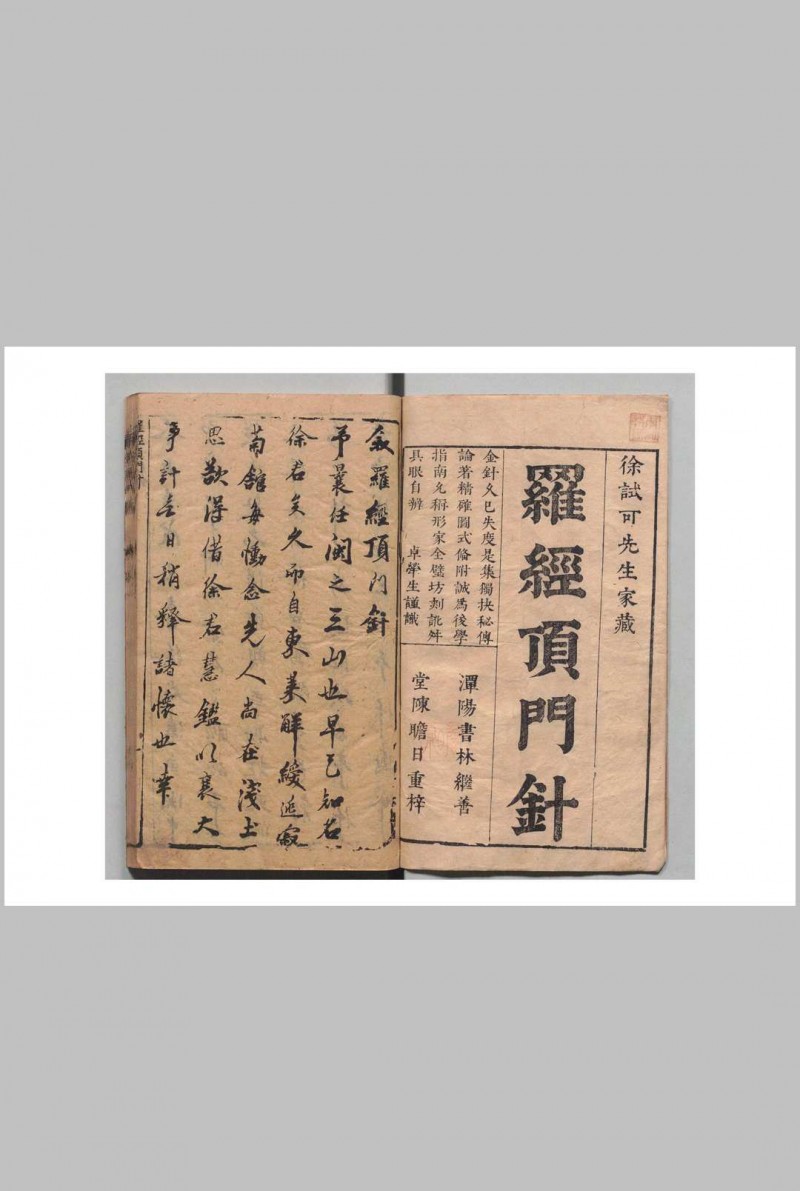 徐試可先生家藏
羅經頂門針
金針久已失度是集獨抉秘傳
論著精確圖式俻附誠爲後學
指南允稱形家全璧坊刻訛舛
具眼自辨 卓犖生謹識
潭陽書林繼善
堂陳瞻日重梓
敘羅經頂門針
予曩任閩之三山也早已知有
徐君矣久而自東萊解綬迯寂
菊舘每慟念先人尚在淺土
思欲得借徐君慧鑑以襄大
事計無日稍釋諸懷也幸
羅經頂門針